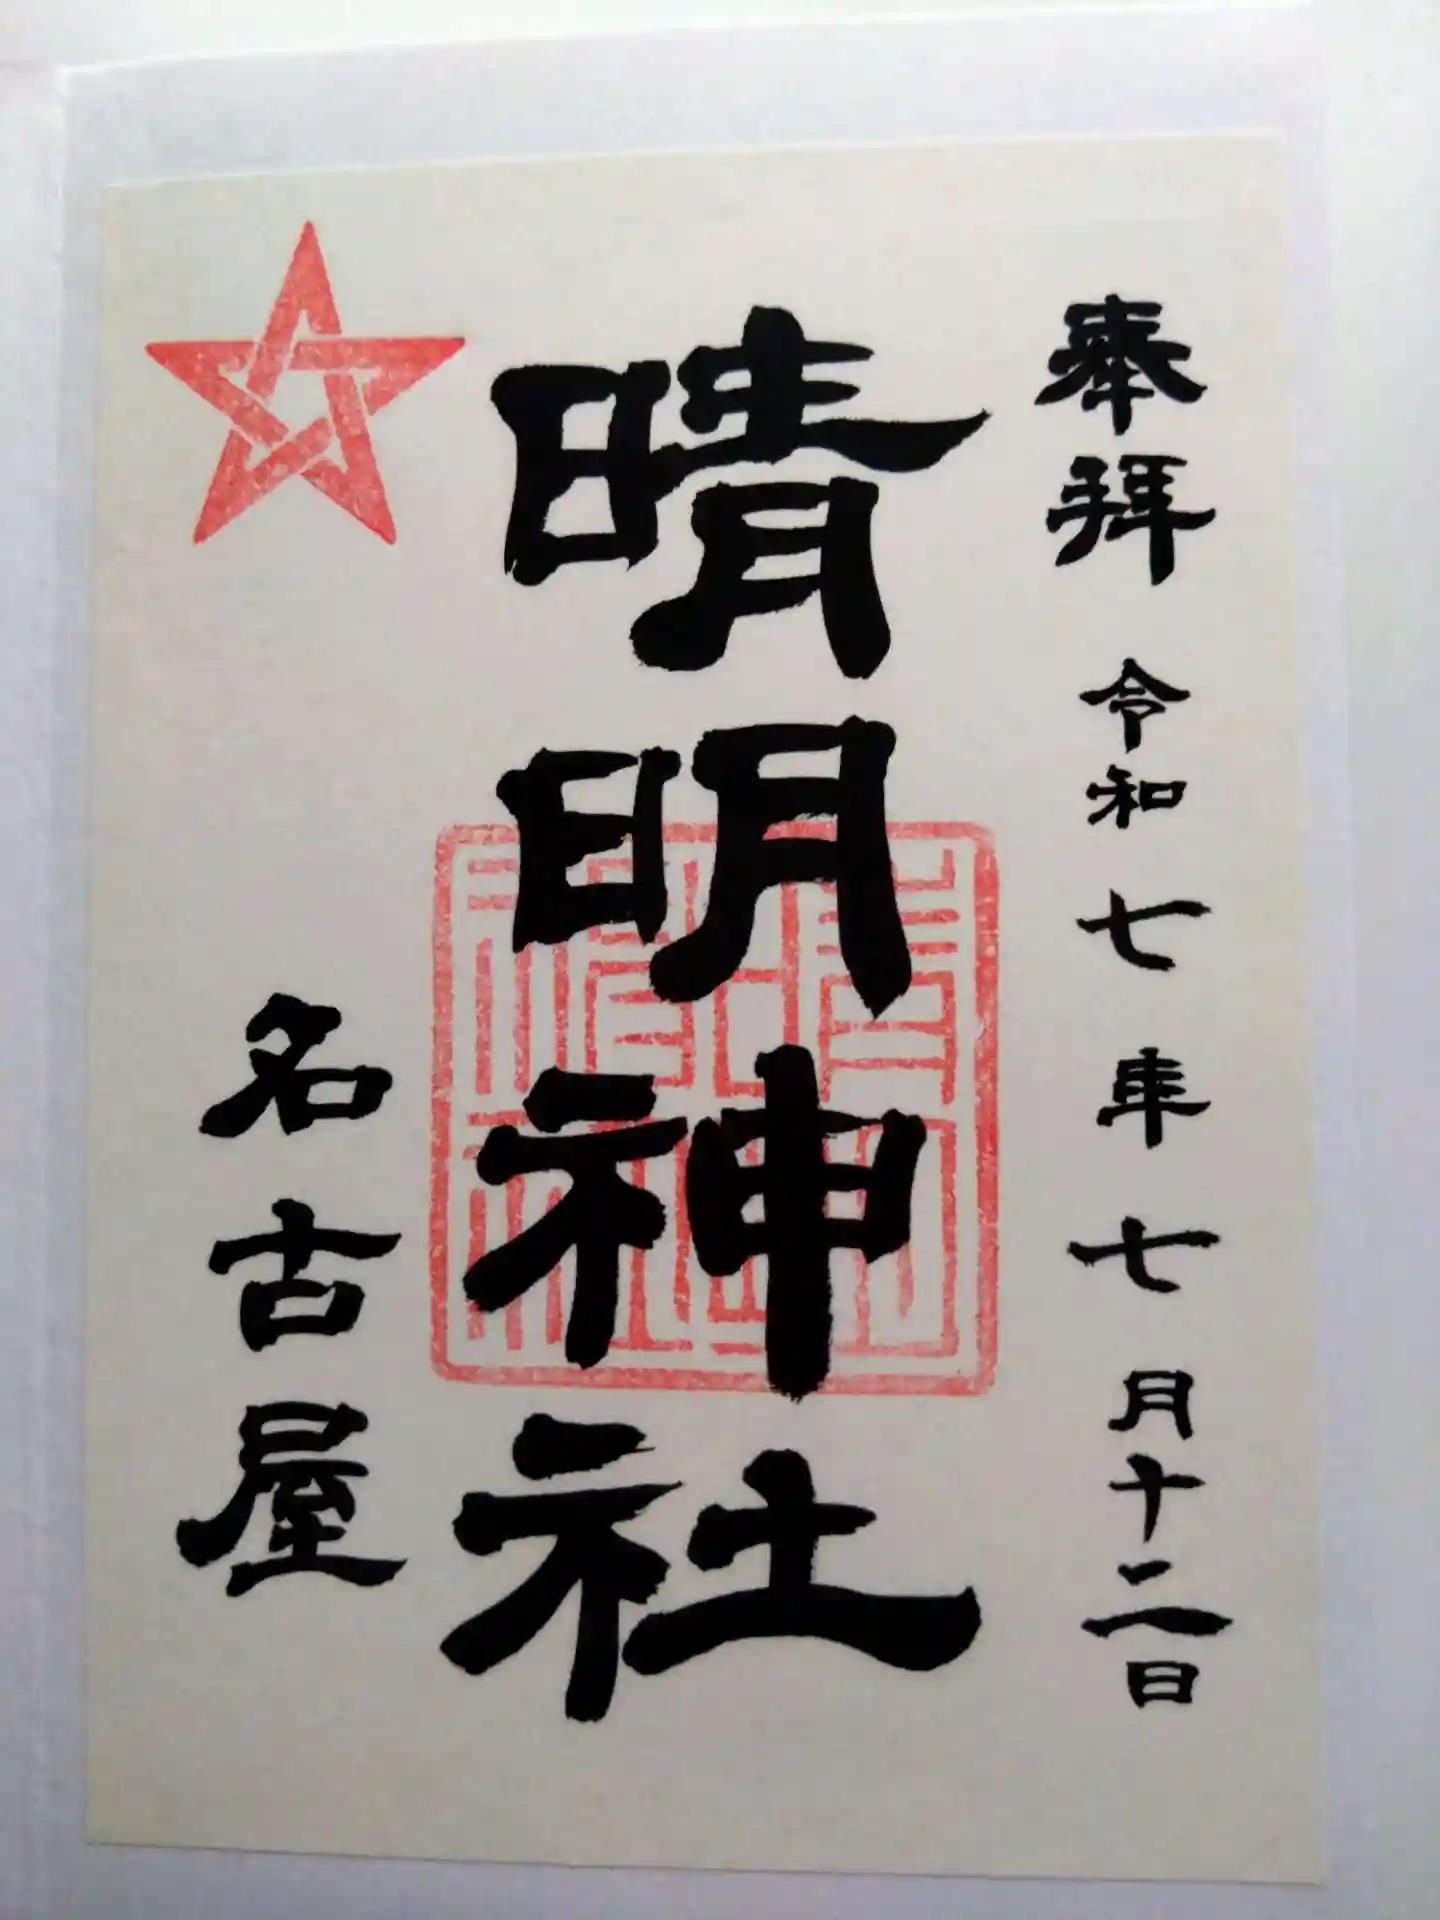 奉拝 令和七年七月十二日
晴明神社
名古屋